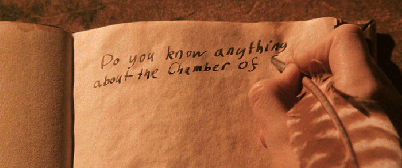 Do you know anything
about the Chamber of